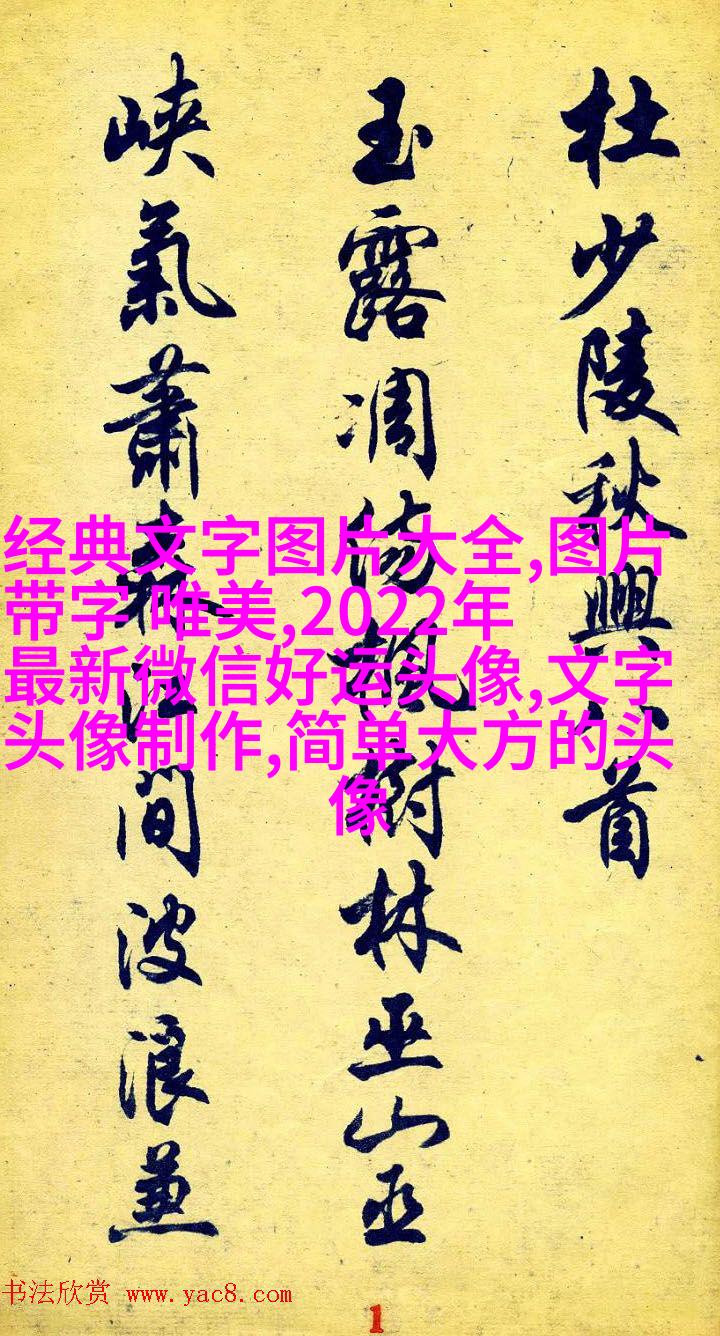 杜少陵秋興八首
玉露凋傷楓樹林巫山巫
峽氣蕭森江間波浪兼
经典文字图片大全,图片
带字 唯美,2022年
最新微信好运头像,文字
头像制作,简单大方的头
像
书法欣赏 www.yac8.com
1